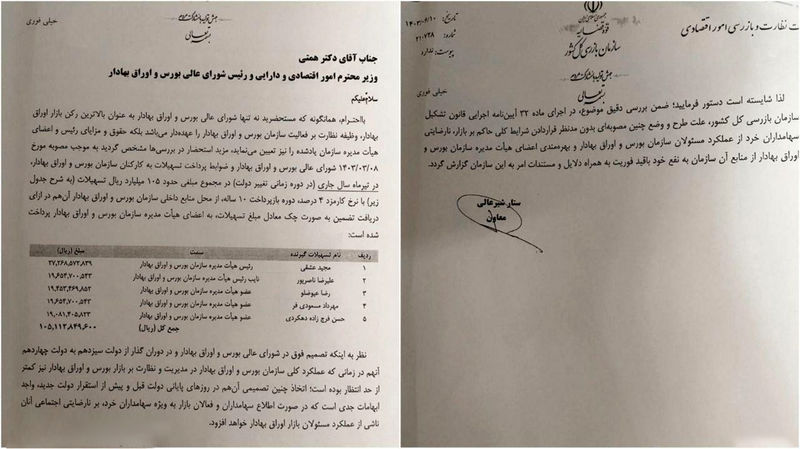 جهش تولید با مشارکت مردم
خیلی فوری
بسمه تعالی
جناب آقای دکتر همتی
وزیر محترم امور اقتصادی و دارایی و رئیس شورای عالی بورس و اوراق بهادار
سلام‌علیکم
بااحترام، همانگونه که مستحضرید نه تنها شورای عالی بورس و اوراق بهادار به عنوان بالاترین رکن بازار اوراق
بهادار، وظیفه نظارت بر فعالیت سازمان بورس و اوراق بهادار را عهده‌دار می‌باشد بلکه حقوق و مزایای رئیس و اعضای
هیأت مدیره سازمان یادشده را نیز تعیین می‌نماید، مزید استحضار در بررسی‌ها مشخص گردید به موجب مصوبه مورخ
۱۴۰۳/۰۳/۰۸ شورای عالی بورس و اوراق بهادار و ضوابط پرداخت تسهیلات به کارکنان سازمان بورس و اوراق بهادار،
در تیرماه سال جاری (در دوره زمانی تغییر دولت) در مجموع مبلغی حدود ۱۰۵ میلیارد ریال تسهیلات (به شرح جدول
زیر) با نرخ کارمزد ۴ درصد، دوره بازپرداخت ۱۰ ساله، از محل منابع داخلی سازمان بورس و اوراق بهادار آن‌هم در ازای
دریافت تضمین به صورت چک معادل مبلغ تسهیلات، به اعضای هیأت مدیره سازمان بورس و اوراق بهادار پرداخت
شده است:
ردیف نام تسهیلات گیرنده سمت مبلغ (ریال)
۱ مجید عشقی رئیس هیأت مدیره سازمان بورس و اوراق بهادار ۲۷,۲۶۸,۵۷۲,۸۳۹
۲ علیرضا ناصرپور نایب رئیس هیأت مدیره سازمان بورس و اوراق بهادار ۱۹,۶۵۴,۷۰۰,۵۴۳
۳ رضا عیوضلو عضو هیأت مدیره سازمان بورس و اوراق بهادار ۱۹,۴۵۳,۴۶۹,۸۵۲
۴ مهرداد مسعودی فر عضو هیأت مدیره سازمان بورس و اوراق بهادار ۱۹,۶۵۴,۷۰۰,۵۴۳
۵ حسن فرج زاده دهکردی عضو هیأت مدیره سازمان بورس و اوراق بهادار ۱۹,۰۸۱,۴۰۵,۸۲۳
جمع کل (ریال) ۱۰۵,۱۱۲,۸۴۹,۶۰۰
نظر به اینکه تصمیم فوق در شورای عالی بورس و اوراق بهادار و در دوران گذار از دولت سیزدهم به دولت چهاردهم
آنهم در زمانی که عملکرد کلی سازمان بورس و اوراق بهادار در مدیریت و نظارت بر بازار بورس و اوراق بهادار نیز کمتر
از حد انتظار بوده است؛ اتخاذ چنین تصمیمی آن‌هم در روزهای پایانی دولت قبل و پیش از استقرار دولت جدید، واجد
ابهامات جدی است که در صورت اطلاع سهامداران و فعالان بازار به ویژه سهامداران خرد، بر نارضایتی اجتماعی آنان
ناشی از عملکرد مسئولان بازار اوراق بهادار خواهد افزود.
جمهوری اسلامی ایران
قوه قضائیه
سازمان بازرسی کل کشور
ت نظارت و بازرسی امور اقتصادی
تاریخ: ۱۴۰۳/۰۶/۱۰
شماره: ۲۱۰۷۲۸
پیوست: ندارد
جهش تولید با مشارکت مردم
خیلی فوری
بسمه تعالی
لذا شایسته است دستور فرمایید؛ ضمن بررسی دقیق موضوع، در اجرای ماده ۳۲ آیین‌نامه اجرایی قانون تشکیل
سازمان بازرسی کل کشور، علت طرح و وضع چنین مصوبه‌ای بدون مدنظر قراردادن شرایط کلی حاکم بر بازار، نارضایتی
سهامداران خرد از عملکرد مسئولان سازمان بورس و اوراق بهادار و بهره‌مندی اعضای هیأت مدیره سازمان بورس و
اوراق بهادار از منابع آن سازمان به نفع خود باقید فوریت به همراه دلایل و مستندات امر به این سازمان گزارش گردد.
ستار شیرعالی
معاون